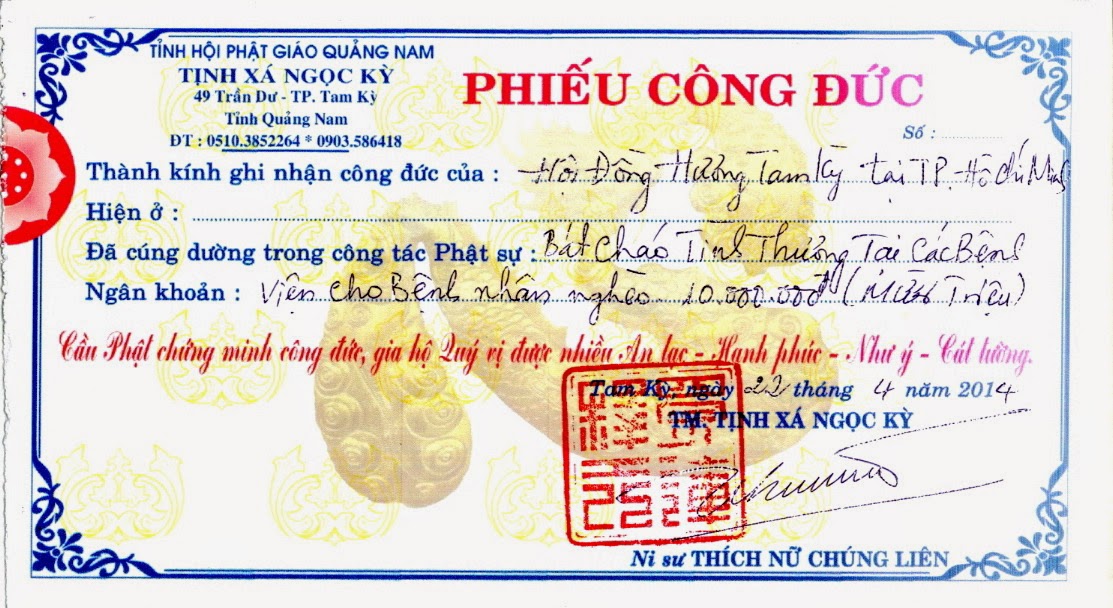 TỈNH HỘI PHẬT GIÁO QUẢNG NAM
TỊNH XÁ NGỌC KỲ
49 Trần Dư - TP. Tam Kỳ
Tỉnh Quảng Nam
ĐT : 0510.3852264 * 0903.586418
PHIẾU CÔNG ĐỨC
Số :
Thành kính ghi nhận công đức của : Hội Đồng Hương Tam Kỳ tại TP. Hồ Chí Minh
Hiện ở :
Đã cúng dường trong công tác Phật sự : Bát Cháo Tình Thương Tại Các Bệnh
Ngân khoản : Viện cho Bệnh nhân nghèo 10.000.000đ (Mười Triệu)
Cầu Phật chứng minh công đức, gia hộ Quý vị được nhiều An lạc - Hạnh phúc - Như ý - Cát tường.
Tam Kỳ, ngày 22 tháng 4 năm 2014
TM. TỊNH XÁ NGỌC KỲ
Ni sư THÍCH NỮ CHÚNG LIÊN